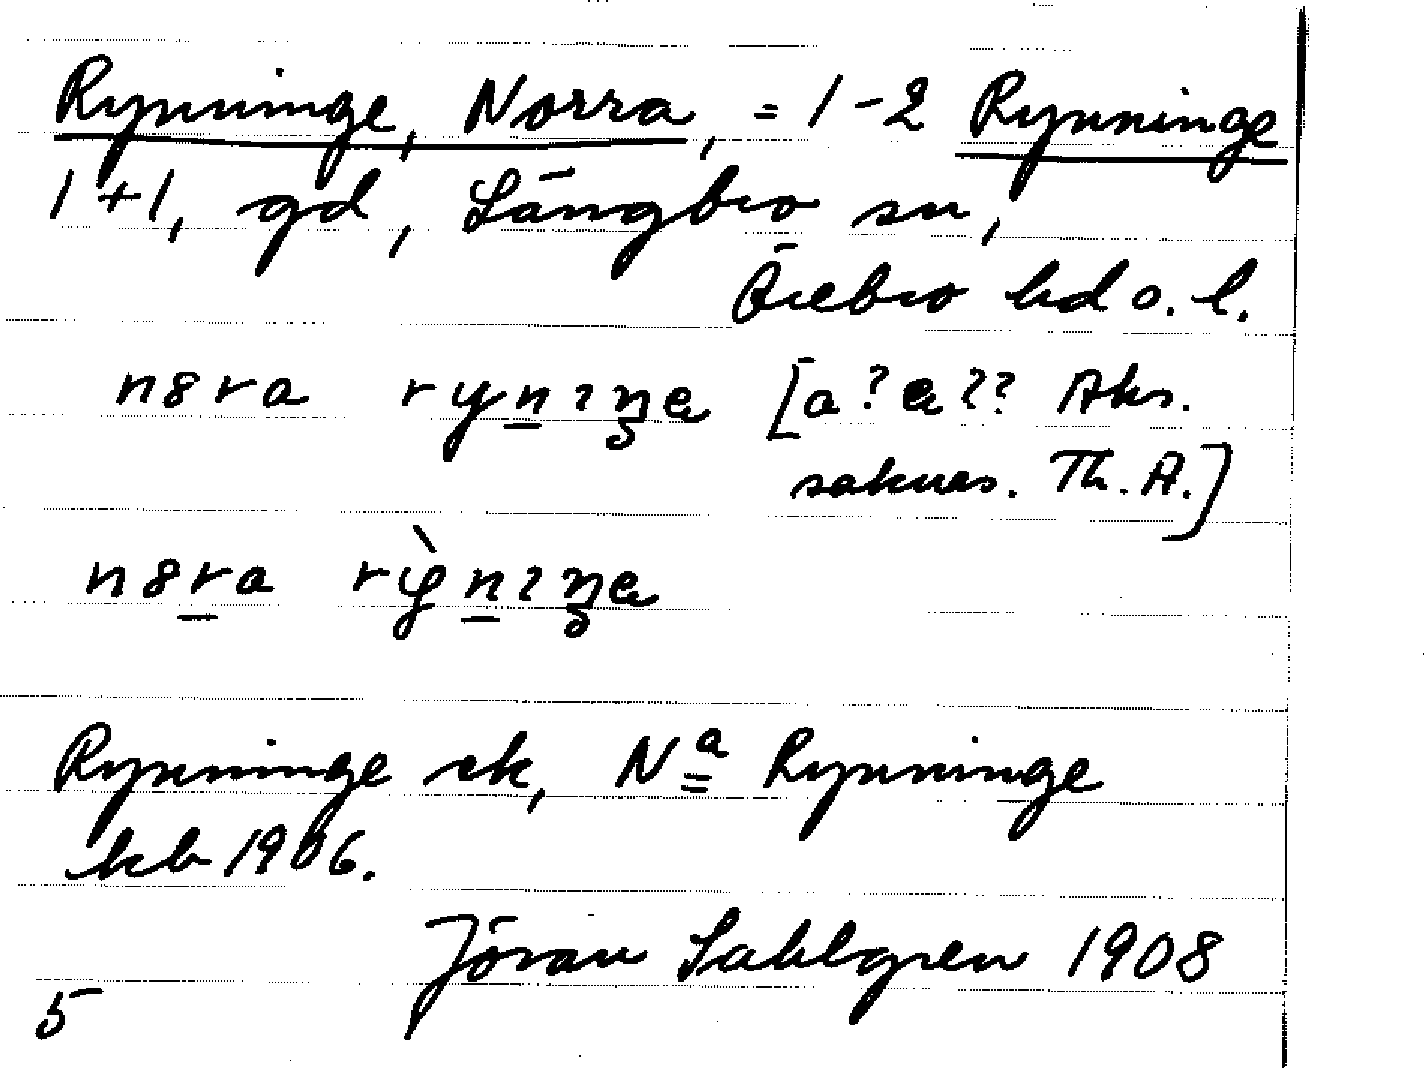 Rynninge, Norra, = 1-2 Rynninge
1+1, gd, Längbro sn,
Örebro hd o. l.
n8ra ryn
[a? e?? Aks.
saknas. Th. A.]
n8ra
Rynninge ek, Na Rynninge
kb 1906.
Jöran Sahlgren 1908
5